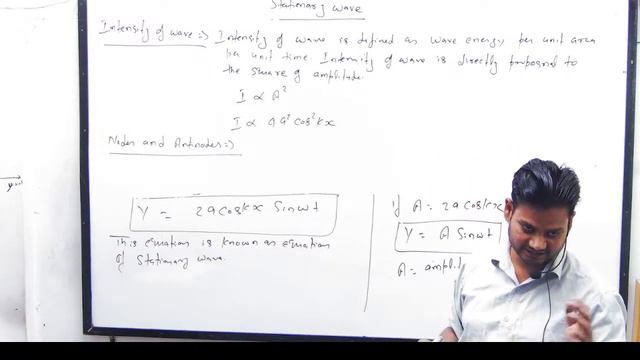 Stationary wave
Intensity of wave :⇒ Intensity of wave is defined as wave energy per unit area
per unit time Intensity of wave is directly proposnal to
the square of amplitude.
I ∝ A²
I ∝ 4a² cos² kx
Nodes and Antinodes :⇒
Y = 2a cos kx Sin ωt
This equation is known as equation
of Stationary wave.
if A = 2a cos kx
Y = A Sin ωt
A =